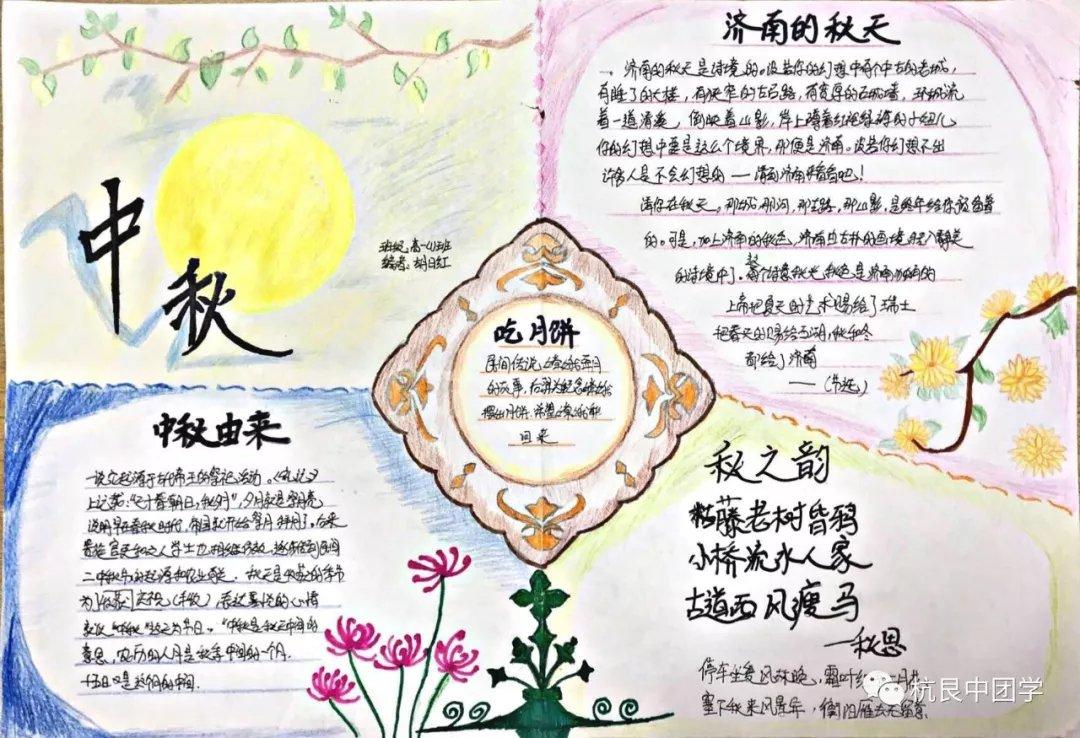 中秋
班级:高一(4)班
编者:胡日红
济南的秋天
济南的秋天是诗境的。设若你的幻想中有个中古的老城,
有睡着了的大楼,有狭窄的古石路,有宽厚的石城墙,环城流
着一道清溪,倒映着山影,岸上蹲着红袍绿裤的小妞儿
你的幻想中要是这么个境界,那便是济南。设若你幻想不出
许多人是不会幻想的——请到济南来看看吧!
请你在秋天,那城,那河,那古路,那山影,是终年给你预备着
的。可是,加上济南的秋色,济南由古朴的画境转入静美
的诗境中了。这个诗意秋光秋色是济南独有的
上帝把夏天的艺术赐给了瑞士
把春天的赐给西湖,秋和冬
都给了济南
吃月饼
民间传说
的故事,后羿为纪念嫦娥
摆出月饼,希望嫦娥能
回来
中秋由来
一说它起源于古代帝王的祭祀活动。《礼记》
上记载:"天子春朝日,秋夕月",夕月就是祭月亮
说明早在春秋时代,帝王就开始祭月、拜月了。后来
贵族官吏和文人学士也相继仿效,逐步传到民间
二中秋节的起源和农业有关。秋天是收获的季节
为庆祝丰收,表达喜悦的心情
意思,农历的八月是秋季中间的一个月,
十五日又是这个月的中间.
秋之韵
枯藤老树昏鸦
小桥流水人家
古道西风瘦马
——秋思
停车坐爱枫林晚,霜叶红 二月花
塞下秋来风景异,衡阳雁去无留意
杭艮中团学